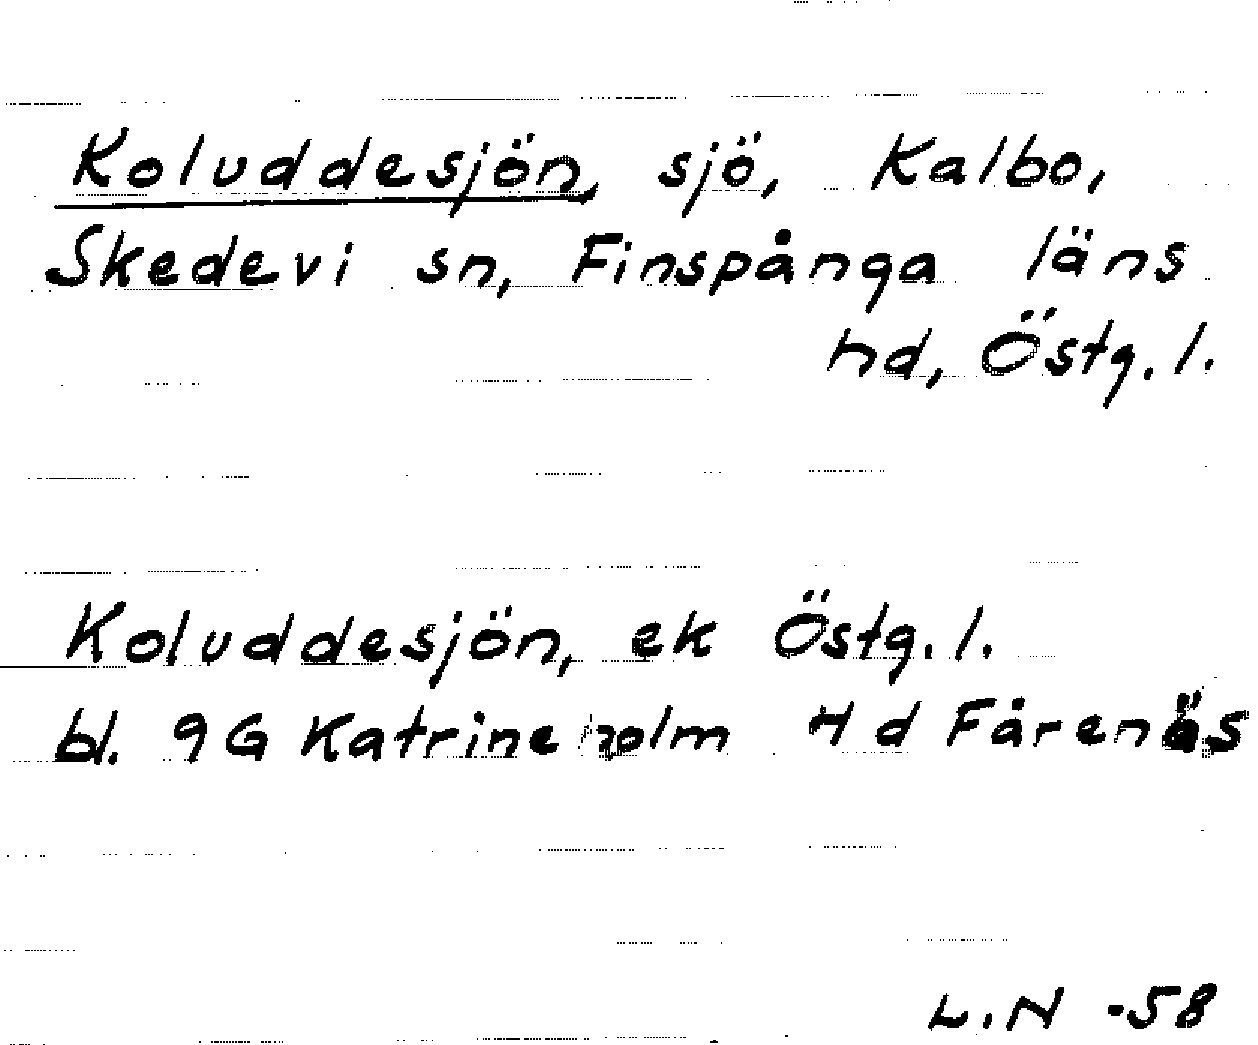 Koluddesjön, sjö, Kalbo,
Skedevi sn, Finspånga läns
hd, Östg. l.
Koluddesjön, ek Östg. l.
bl. 9G Katrineholm 4 d Fårenäs
L.N -58